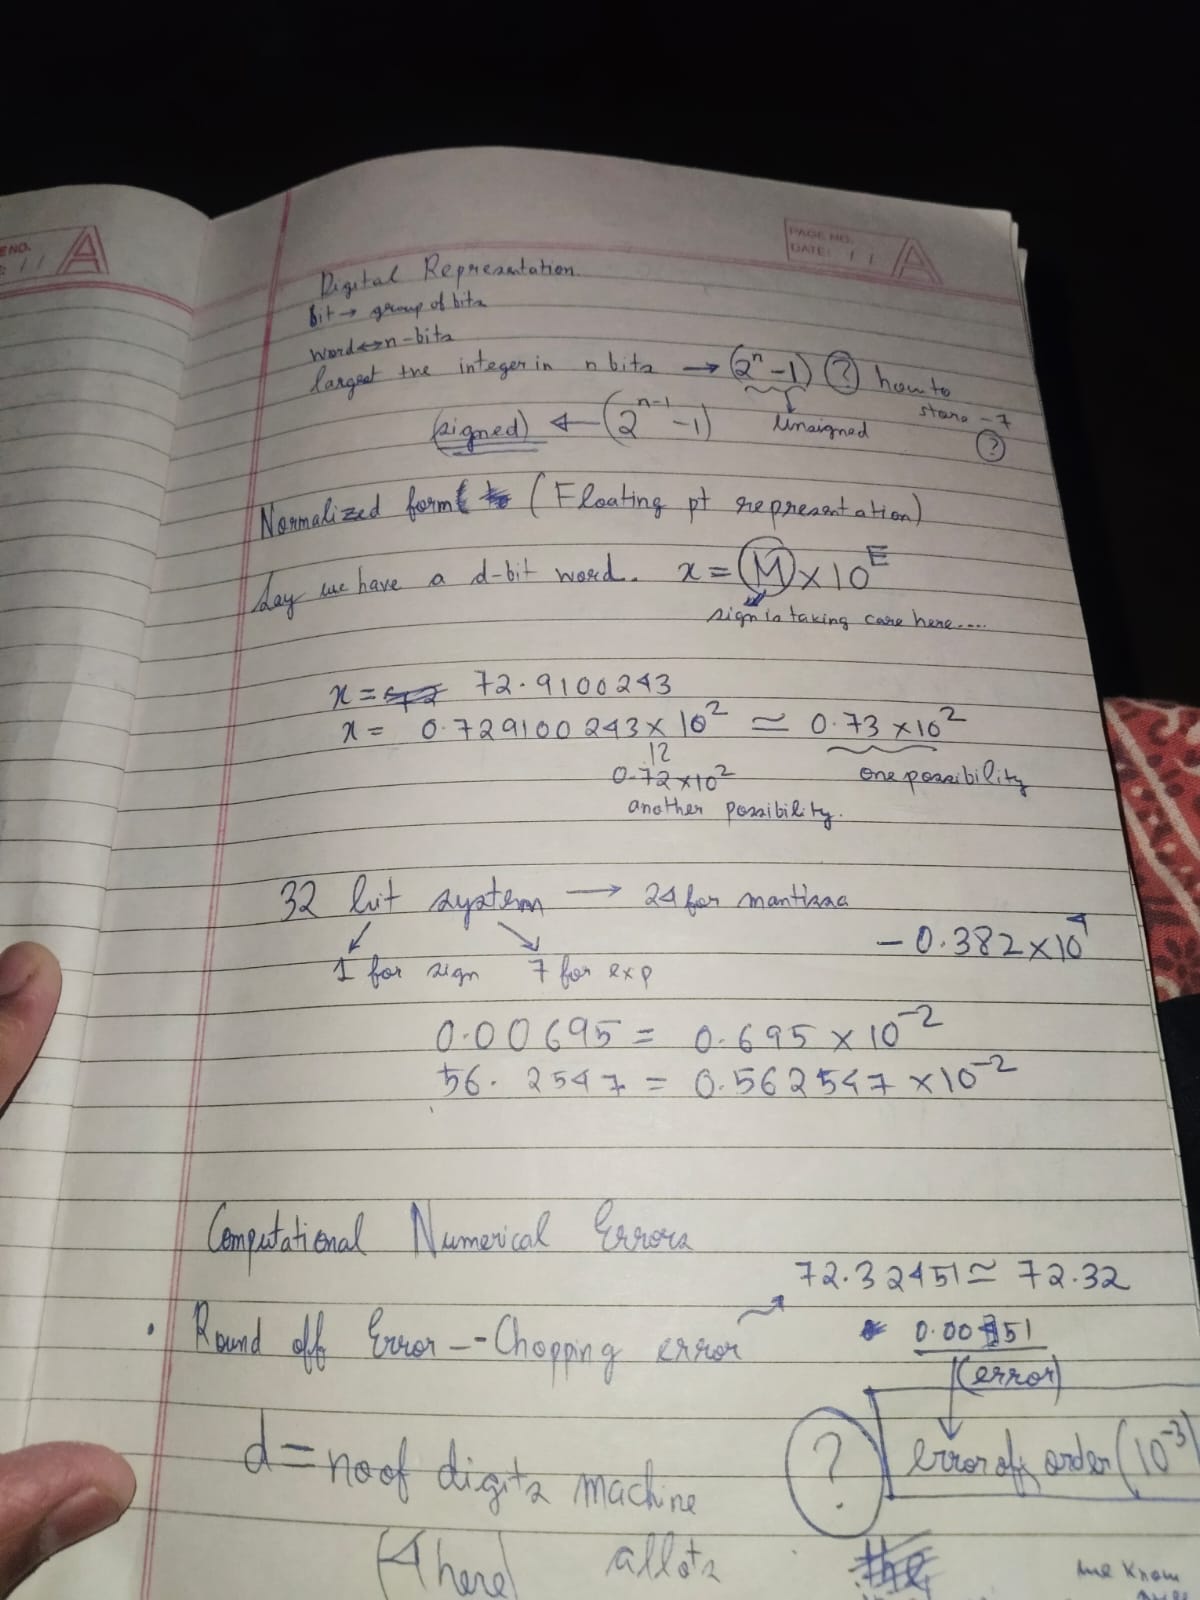 ENO.
: / /
A
PAGE NO.
DATE: / /
A
Digital Representation
bit → group of bits
word ↔ n-bits
largest +ve integer in n bits → (2ⁿ - 1) ? how to
store -7
?
(signed) ← (2ⁿ⁻¹ - 1) Unsigned
Normalized form (Floating pt representation)
Say we have a d-bit word. x = M × 10ᴱ
sign is taking care here....
x = 72.9100243
x = 0.729100243 × 10² ≃ 0.73 × 10²
12
0.72 × 10² one possibility
another possibility.
32 bit system → 24 for mantissa
- 0.382 × 10⁴
1 for sign 7 for exp
0.00695 = 0.695 × 10⁻²
56.2547 = 0.562547 × 10⁻²
Computational Numerical Errors
72.32451 ≃ 72.32
• Round off Error -- Chopping error
(error)
d = no of digits machine ? error of order (10⁻³)
(4 here) allots
we know